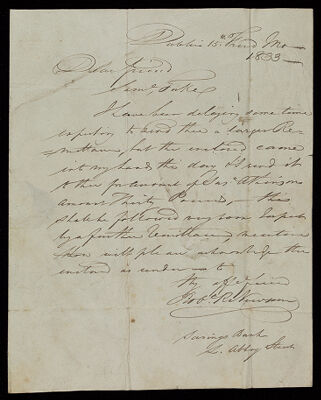 Dublin 15th Third Mo
1833
Dear friend
Simn. Fake
I have been delaying some time
expecting to send thee a larger Re-
mittance, but the enclosed came
into my hands this day & I send it
to thee for account of Jas. Atkinson
amount Thirty Pounds, this
shall be followed very soon I expect
by a further remittance, meantime
thou will please acknowledge the
enclosed as under as to
thy aff. friend
Robt.
Savings Bank
L. Abbey Street